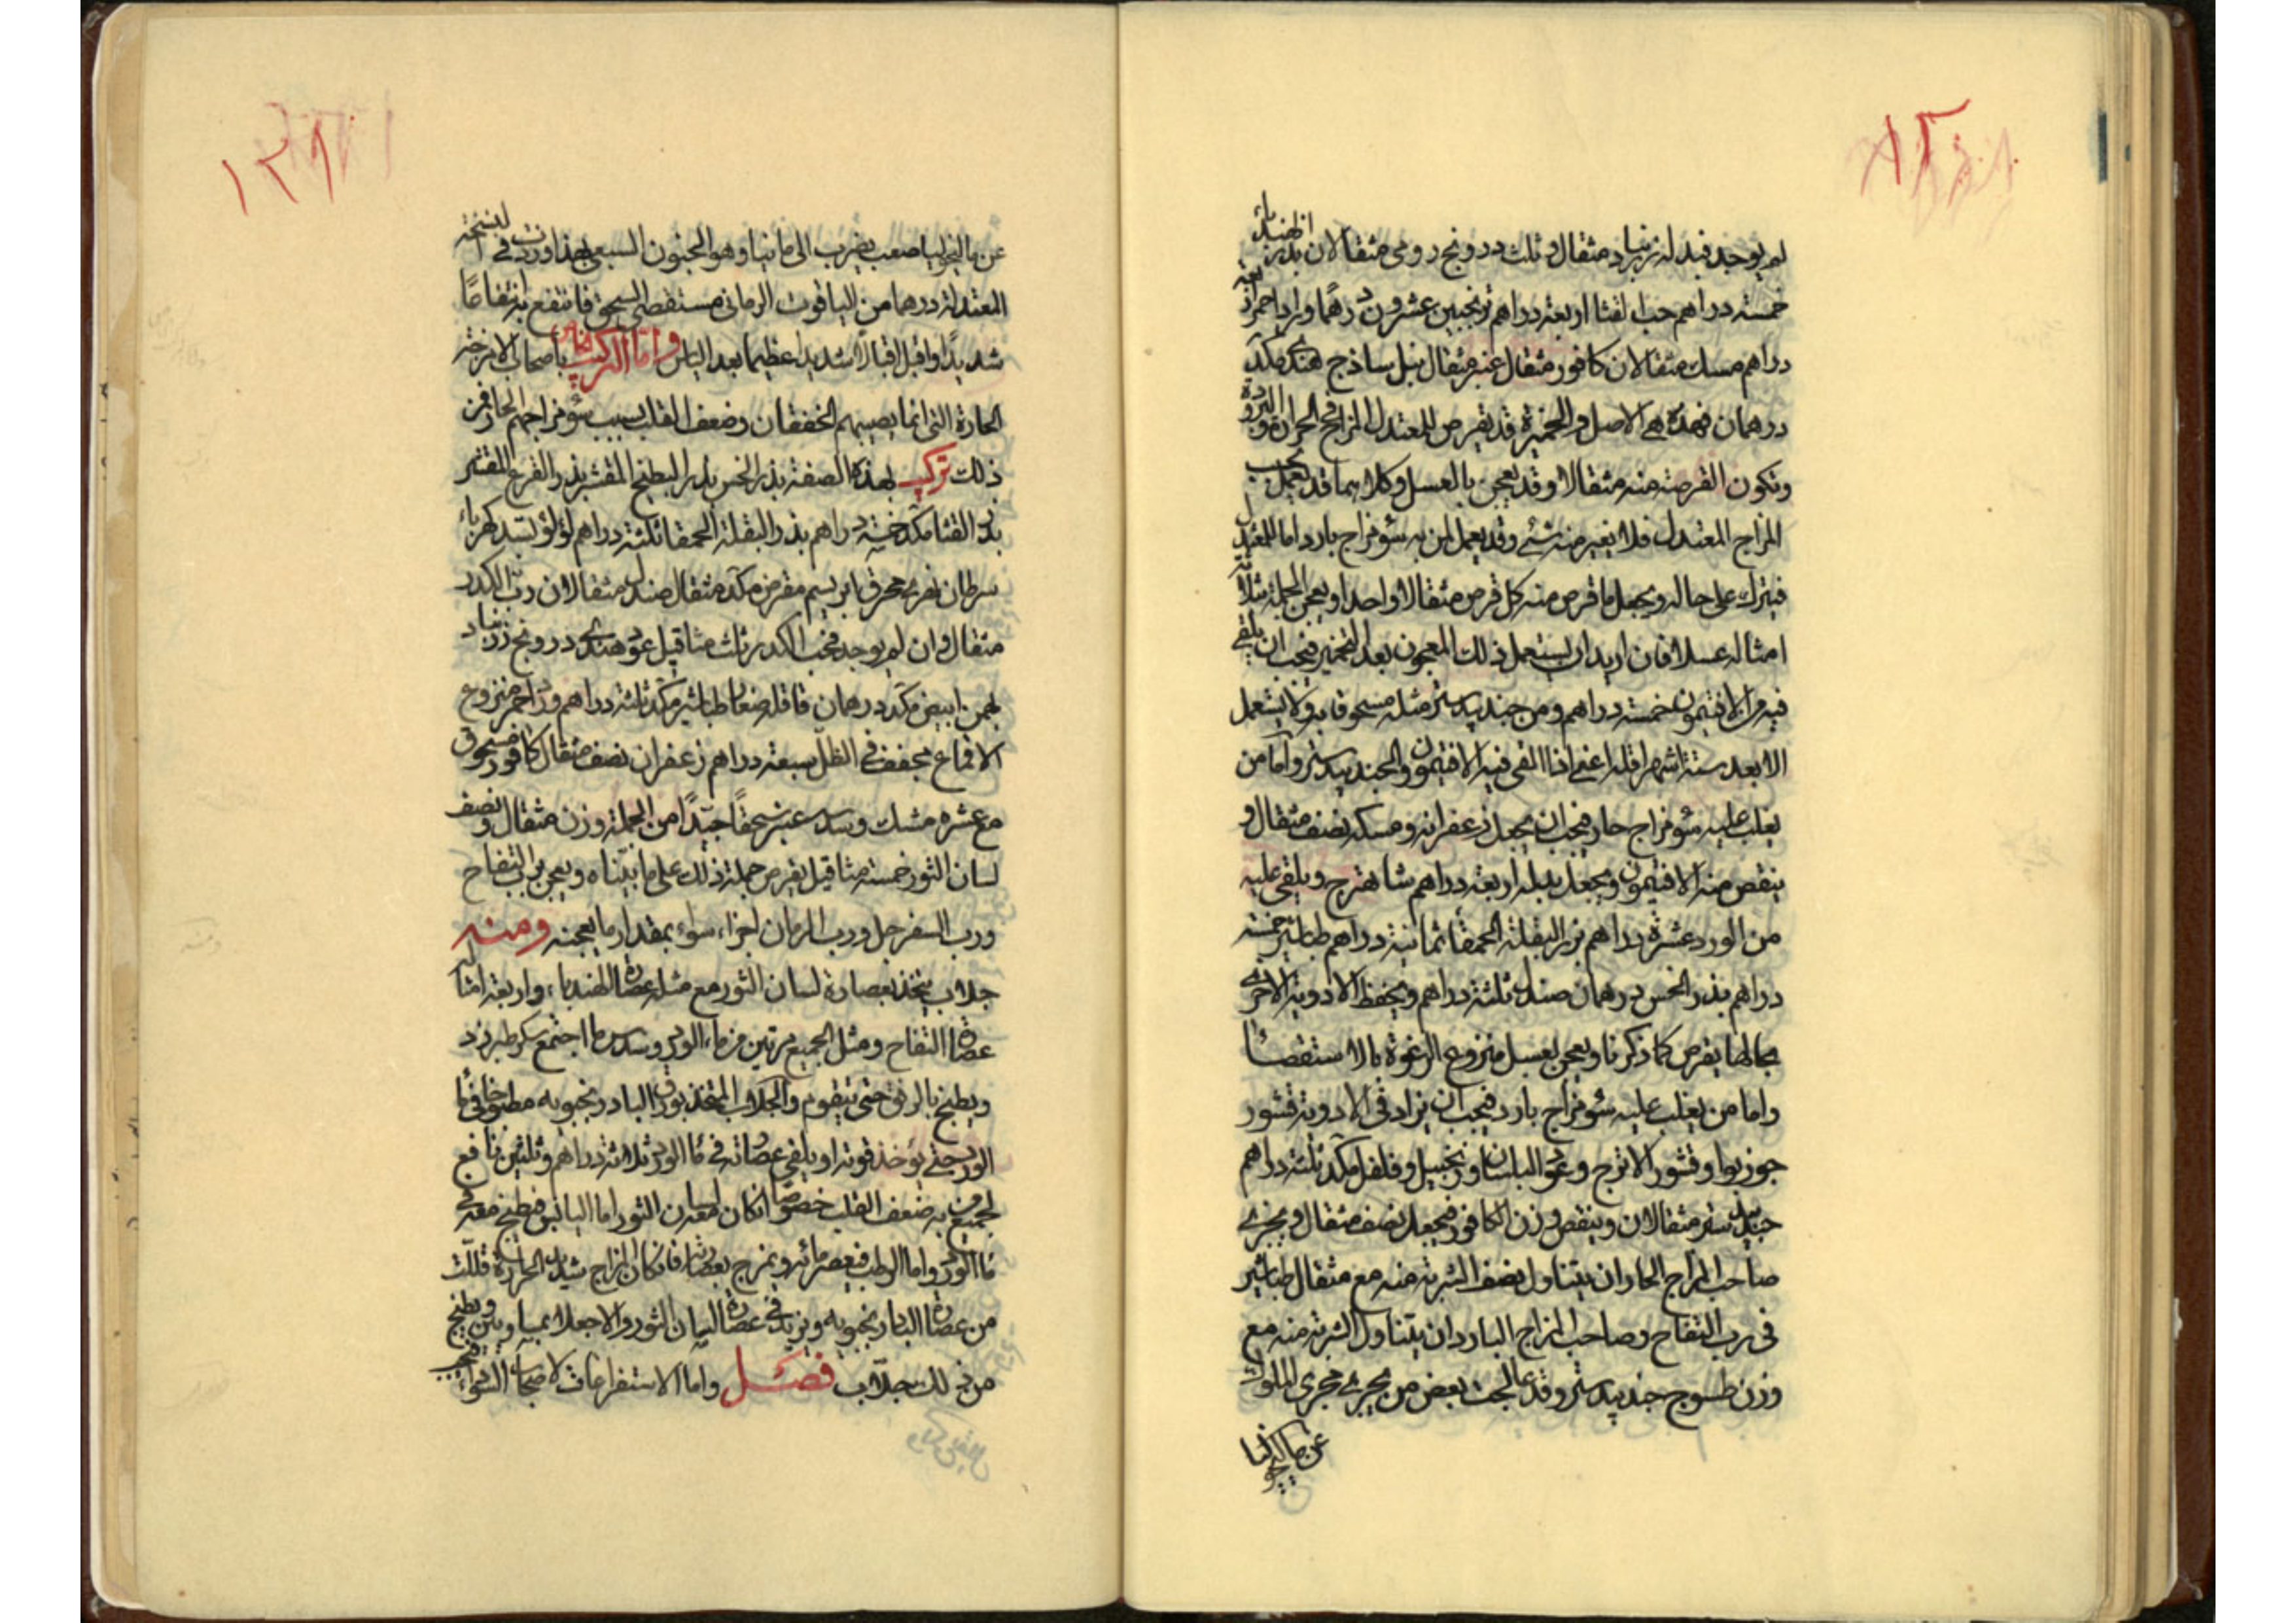 لم يوجد فبدله زرنباد مثقال وثلث درونج رومى مثقالان بذر الهندباء
خمسة دراهم حب القثا اربعة دراهم ترنجبين عشرون درهما ورد احمر اربعة
دراهم مسك مثقالان كافور مثقال عنبر مثقال سنبل ساذج هندى مكد
درهمان فهذه هى الاصل والخميرة قد يقرص للمعتدل المزاج فى الحرارة والبرودة
وتكون القرصة منه مثقالا وقد يعجن بالعسل وكلاهما قد يعمل بحسب
المزاج المعتدل فلا يغير منه شئ وقد يعمل لمن به سوء مزاج بارد اما للمعتدل
فيترك على حاله ويجعل ما قرص منه كل قرص مثقالا واحدا ويعجن الجملة بثلاثة
امثاله عسلا فان اريد ان يستعمل ذلك المعجون بعد التخمير فيجب ان يلقى
فيه من الافتيمون خمسة دراهم ومن جندبيدستر مثله مسحوقا به ولا يستعمل
الا بعد ستة اشهر اقله اعنى اذا القى فيه الافتيمون والجندبيدستر واما من
يغلب عليه سوء مزاج حار فيجب ان يجعل زعفرانه ومسكه نصف مثقال و
ينقص منه الافتيمون ويجعل بدله اربعة دراهم شاهترج ويلقى عليه
من الورد عشرة دراهم بزر البقلة الحمقا ثمانية دراهم طباشير خمسة
دراهم بذر الخس درهمان صندل ثلثة دراهم ويحفظ الادوية الاخرى
بحالها يقرص كما ذكرنا ويعجن بعسل منزوع الرغوة بالاستقصا
واما من يغلب عليه سوء مزاج بارد فيجب ان يزاد فى الادوية قشور
جوزبوا وقشور الاترج وعود البلسان وزنجبيل وفلفل مكد ثلثة دراهم
جندبيدستر مثقالان وينقص وزن الكافور فيجعل نصف مثقال ويجزى
صاحب المزاج الحار ان يتناول نصف الشربة منه مع مثقال طباشير
فى رب التفاح وصاحب المزاج البارد ان يتناول الشربة منه مع
وزن طسوج جندبيدستر وقد عالجت بعض من يجرى مجرى الملوك
عن ماليخوليا
١٣١
عن ماليخوليا صعب يضرب الى مانيا وهو الجنون السبعى بهذا وزدت فى النسخة
المعتدلة درهما من الياقوت الرمانى مستقصى السحق فانتفع به انتفاعا
شديدا واقبل اقبالا شديدا عظيما بعد الياس واما التركيب الخاص باصحاب الامزجة
الحارة التى انما يصيبهم الخفقان وضعف القلب بسبب سوء مزاجهم الحار فمن
ذلك تركيب بهذه الصفة بذر الخس بذر البطيخ المقشر بذر القرع المقشر
بذر القثا مكد خمسة دراهم بذر البقلة الحمقا ثلثة دراهم لؤلؤ بسد كهرباء
سرطان نهرى محرق ابريسم مقرض مكد مثقال صندل مثقالان رب الكدر
مثقال وان لم يوجد فخب الكدر ثلث مثاقيل عود هندى درونج زرنباد
بهمن ابيض مكد درهمان قاقله صغار طباشير مكد ثلثة دراهم ورد احمر منزوع
الاقماع مجفف فى الظل سبعة دراهم زعفران نصف مثقال كافور مسحوق
مع عشره مسك وسدسه عنبر سحقا جيدا من الجملة وزن مثقال ونصف
لسان الثور خمسة مثاقيل يقرص جملة ذلك على ما بيناه ويعجن برب التفاح
ورب السفرجل ورب الرمان اجزاء سواء بمقدار ما يعجنه ومنه
جلاب يتخذ بعصارة لسان الثور مع مثله عصارة الهندباء واربعة امثاله
عصارة التفاح ومثل الجميع مرتين من ماء الورد وسدس ما اجتمع سكر طبرزد
ويطبخ بالرفق حتى يتقوم والجلاب المتخذ بورق البادرنجبويه مطبوخا فى ما
الورد حتى يؤخذ قوته او يلقى عصارته فى ما الورد ثلاثة دراهم وثلثين نافع
لجميع من به ضعف القلب خصوصا ان كان معه لسان الثور اما اليابس فطبخ معه فى
ما الورد واما الرطب فيعصر مائه ويمزج بعصارته فان كان المزاج شديد الحرارة قللت
من عصارة البادرنجبويه ويزيد فى عصارة لسان الثور والا جعلا بمساويتين ويطبخ
من ذلك جلاب فصل واما الاستفراغات لاصحاب السوداء فيجب